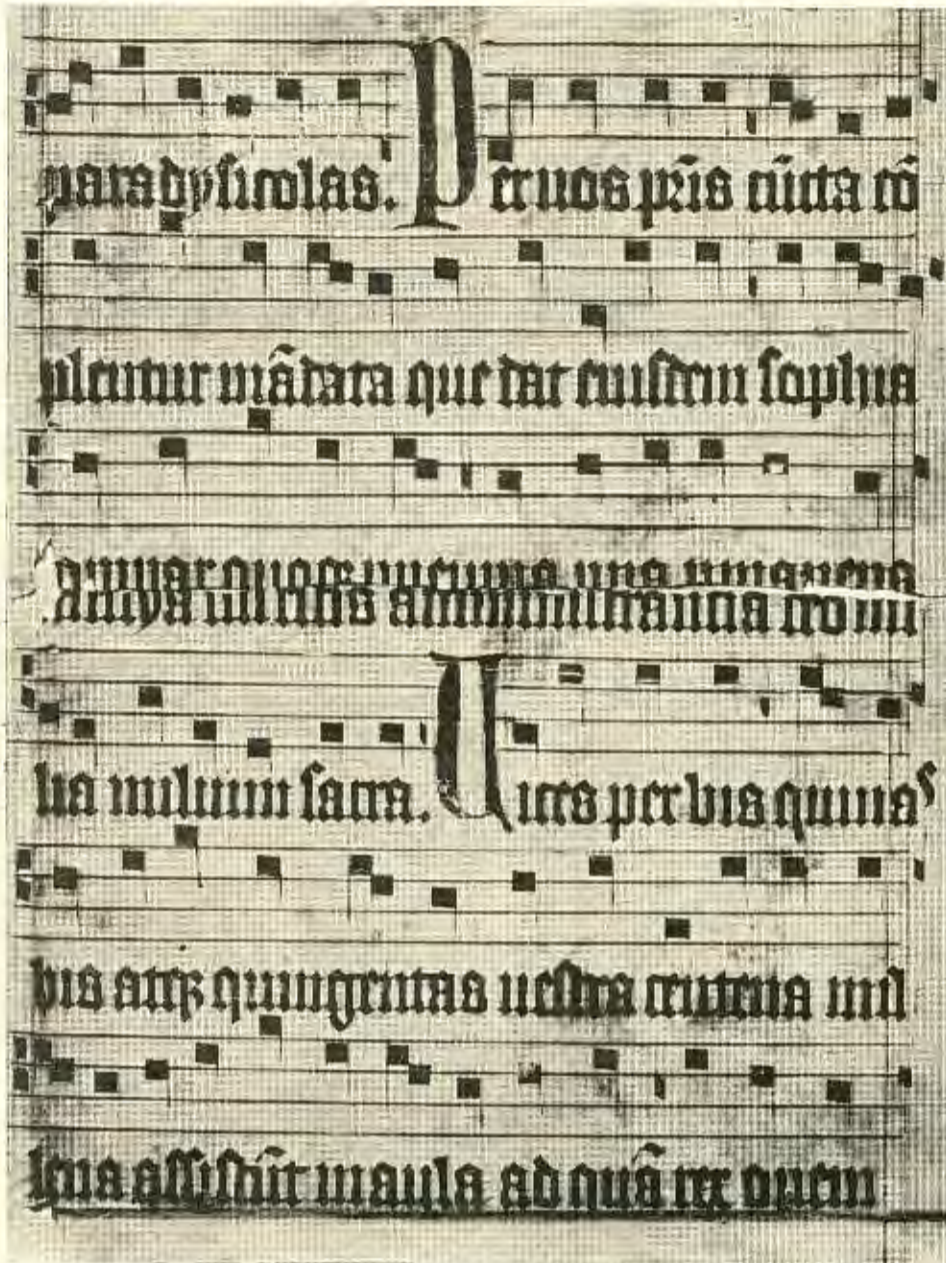 paradysicolas. Per uos pr̄is cūcta cō
plentur mādata que dat eiusdem sophia
una
estis amministrantia deo mi
lia milium sacra. Uices per bis quinas
bis atqꝫ quingentas uestra centena mil
lena assistūt in aula ad quā rex ouem